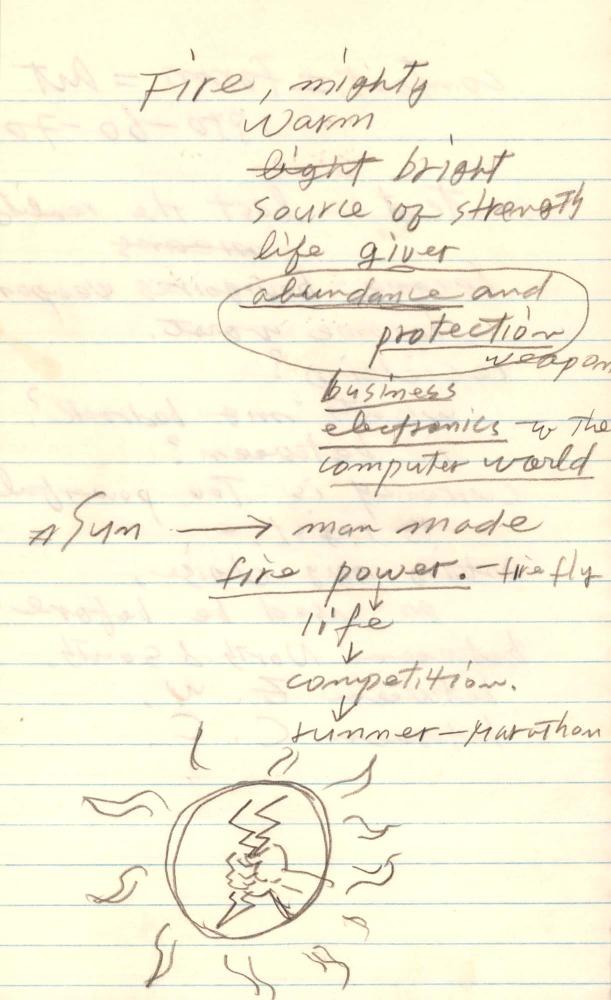 Fire, mighty
warm
light bright
source of strength
life giver
abundance and
protection
weapon
business
electronics - the
computer world
Sun → man made
fire power. - firefly
↓
life
↓
competition.
↓
runner - Marathon